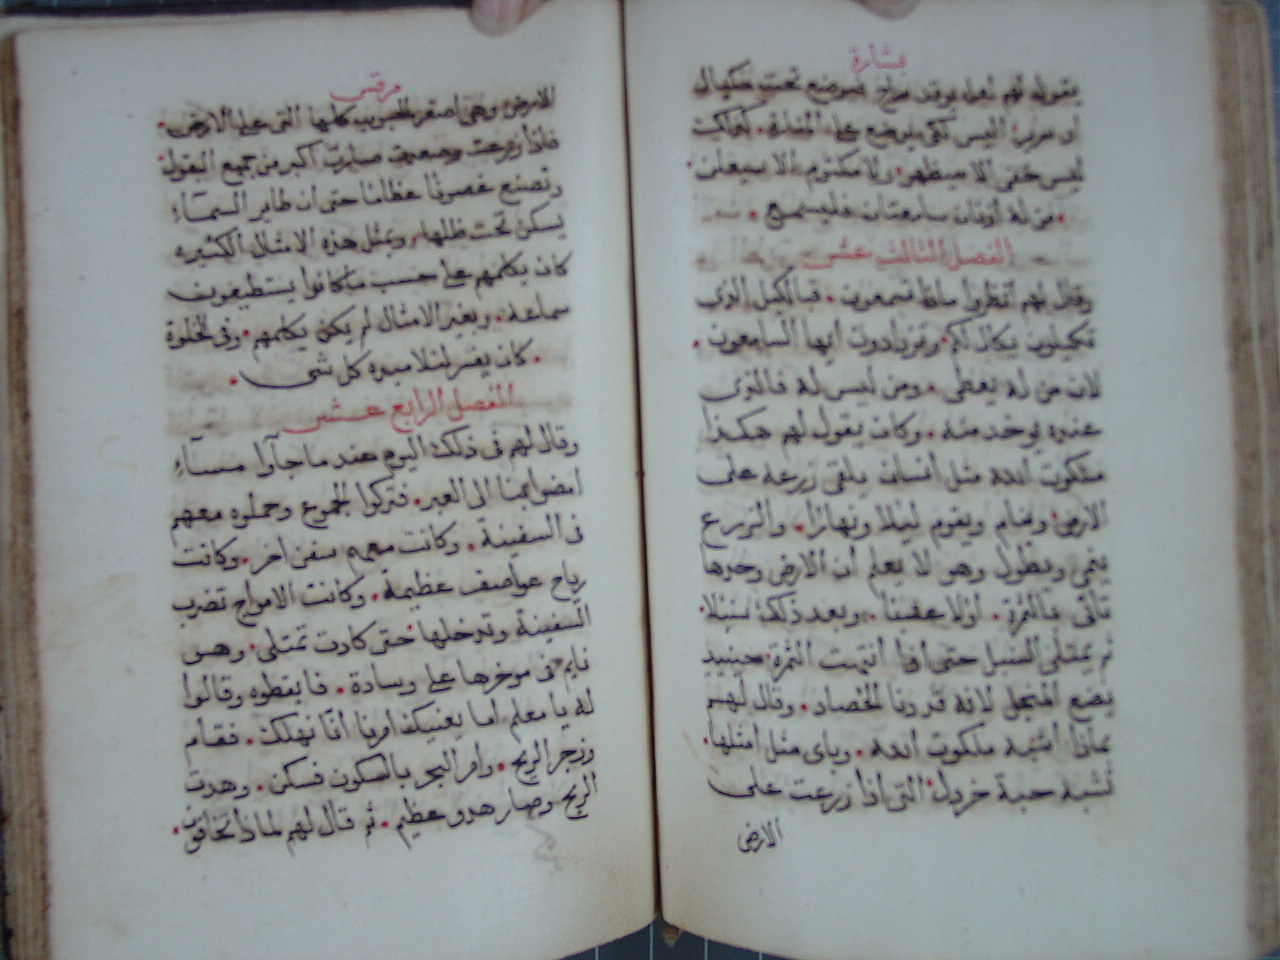 بشارة
يقوله لهم لعله يوقد سراج فيوضع تحت مكيال
او سرير اليس لكى يوضع على المنارة. لانه ليس
ليس خفى الا سيظهر. ولا مكتوم الا سيعلن.
من له اذنان سامعتان فليسمع.
الفصل الثالث عشر
وقال لهم انظروا ماذا تسمعون. فبالكيل الذى
تكيلون يكال لكم. وتزدادون ايها السامعون.
لان من له يعطى. ومن ليس له فالذى
عنده يوخد منه. وكان يقول لهم هكذا
ملكوت الله مثل انسان يلقى زرعه على
الارض وينام ويقوم ليلا ونهارًا. والزرع
ينمى ويطول وهو لا يعلم ان الارض وحدها
تاتى بالثمرة. اولا عشبا. وبعد ذلك سنبلا.
ثم يمتلى السنبل حتى اذا انتهت الثمرة. حينيد
يضع المنجل لانه قد دنا الحصاد. وقال لهم
بماذا اشبه ملكوت الله. وباى مثل امثلها.
تشبه حبة خردل. التى اذا زرعت على
الارض
مرقس
الارض وهى اصغر الحبوب كلها التى على الارض.
فاذا زرعت وصعدت صارت اكبر من جميع البقول
وتصنع غصونا عظاما حتى ان طاير السمآء
يسكن تحت ظلها. وبمثل هذه الامثال الكثيره
كان يكلمهم على حسب ما كانوا يستطيعون
سماعه. وبغير الامثال لم يكن يكلمهم. وفى الخلوة
. كان يفسر لتلاميده كل شى.
الفصل الرابع عشر
وقال لهم فى ذلك اليوم عند ما جآوا مسآء
امضوا بنا الى العبر. فتركوا الجموع وحملوه معهم
فى السفينة. وكانت معهم سفن اخر. وكانت
رياح عواصف عظيمة. وكانت الامواج تضرب
السفينة وتدخلها حتى كادت تمتلى. وهو
نايم فى موخرها على وسادة. فايقظوه وقالوا
له يا معلم اما يعنيك امرنا انّا نهلك. فقام
وزجر الريح. وامر البحر بالسكون فسكن. وهدت
الريح وصار هدو عظيم. ثم قال لهم لماذا تخافون.